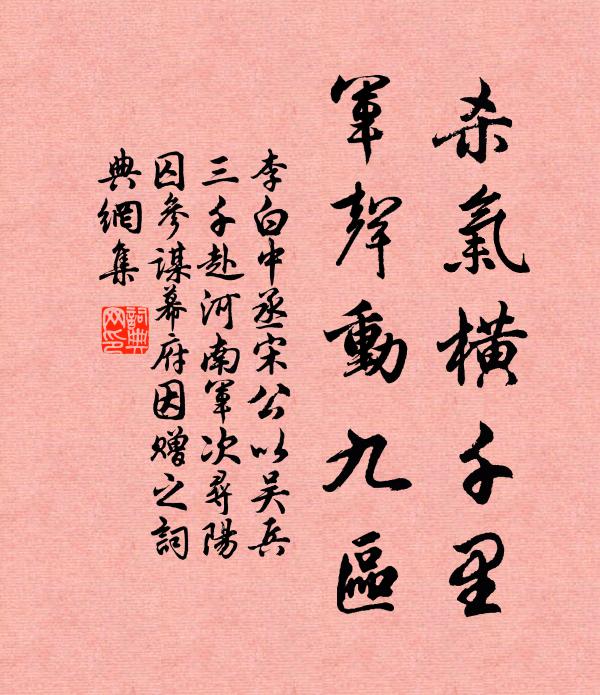 杀氣橫千里
軍聲動九區
李白中丞宋公以吴兵
三千赴河南軍次尋陽
囚參謀幕府因赠之詞
典網集
詞典
网印